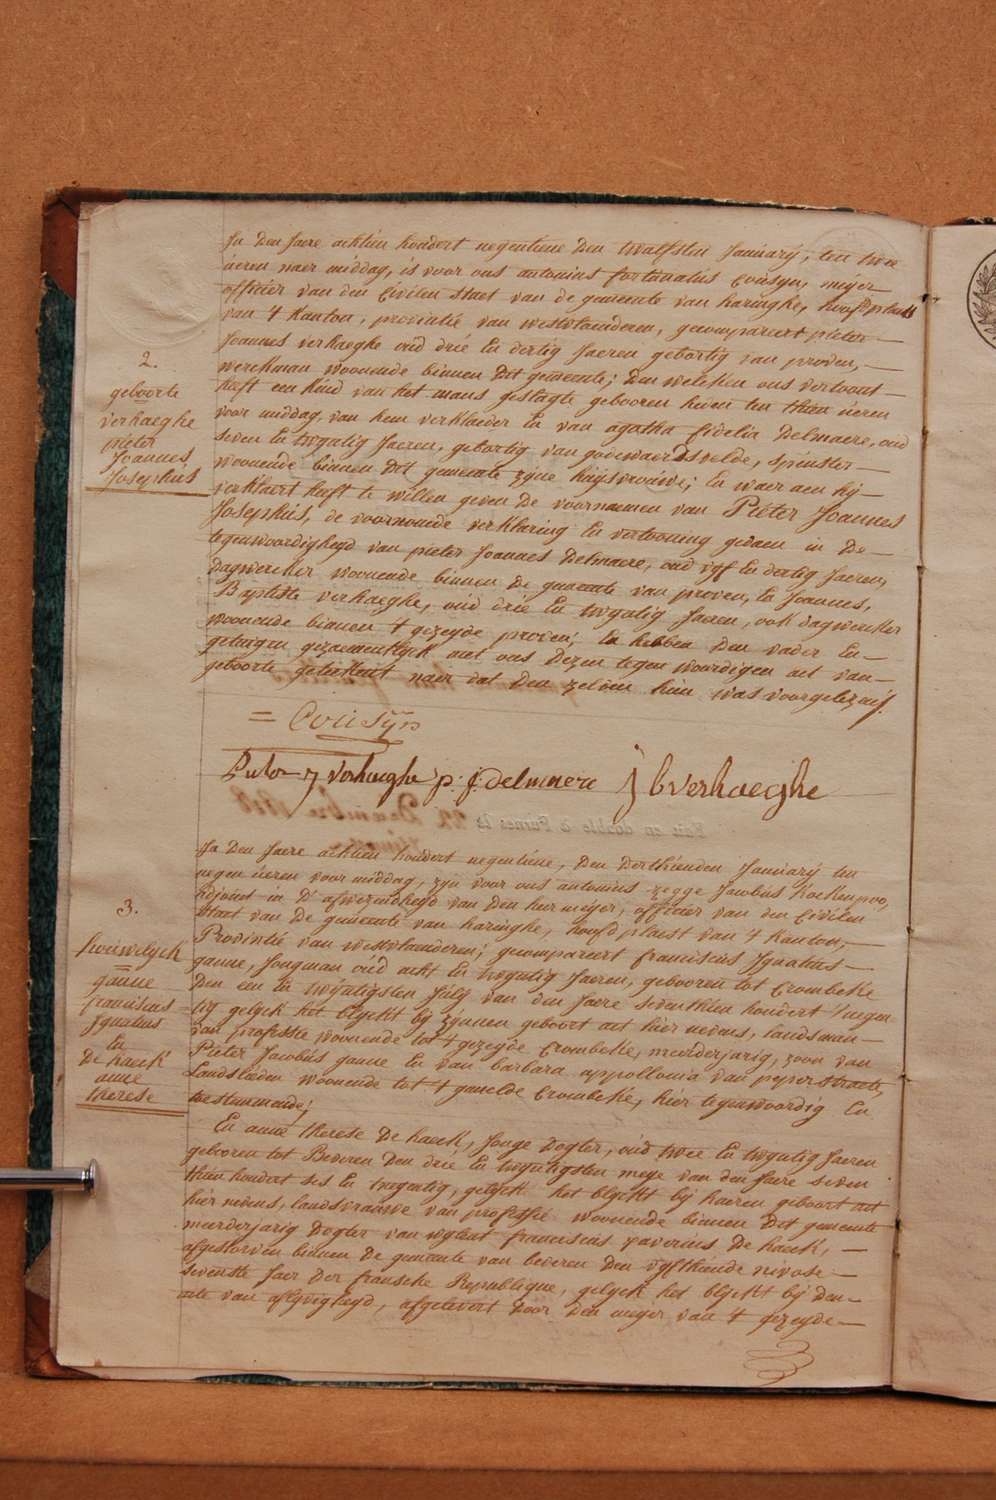 2.
geboorte
verhaeghe
pieter
Joannes
Josephús
In den Jaere achtien hondert negentiene den twalfsten Januarÿ, ten twee
úeren naer middag, is voor ons antonius fortunatus Cousyn, meÿer
officier van den Civilen Staet van de gemeente van haringhe, hoofdplaets
van 't Kanton, provintie van westvlaenderen, gecompareert pieter
Joannes verhaeghe oud drie en dertig Jaeren gebortig van proven,
werckman woonende binnen dit gemeente; den welcken ons vertoont
heeft een kind van het mans geslagte gebooren heden ten thien úeren
voor middag, van hem verklaeder en van agatha fidelia Delmaere, oud
seven en twyntig Jaeren, gebortig van godewaersvelde, spinster
woonende binnen dit gemeente zyne húÿsvrouwe; en waer aen hÿ
verklaert heeft te willen geven de voornaemen van Pieter Joannes
Josephús, de voornoemde verklaring en vertooning gedaen in de
tegenwoordigheyd van pieter Joannes Delmaere, oud vyf en dertig Jaeren,
dagwercker woonende binnen de gemeente van proven, en Joannes,
Baptiste verhaeghe, oúd drie en twyntig Jaeren, ook dagwercker
woonende binnen 't gezeyde proven; en hebben den vader en
getuigen gezaementlyck met ons dezen tegenwoordigen act van
geboorte geteekent naer dat den zelven hun was voorgelezen.
= Cousÿn
Pieter J verhaeghe p: j: delmaere J b verhaeghe
22 Decembre 1818
3.
houwelyck
ganne
franciscus
Ignatius
en
De haeck
anne
therese
In den Jaere achtien hondert negentiene, den derthienden Januarÿ ten
negen úeren voor middag, zyn voor ons antonius zegge Jacobus Kockenpoo,
adjoint in d'afwezendheyd van den heer meÿer, officier van den Civilen
Staet van de gemeente van haringhe, hoofd plaest van 't Kanton,
Provintie van westvlaenderen; gecompareert franciscus Ignatius
ganne, Jongman oúd acht en twyntig Jaeren, gebooren tot Crombeke
den een en twÿntigsten Júlÿ van den Jaere seventhien hondert negen
tig gelyck het blyckt bÿ zÿnen geboort act hier nevens, landsman
van professie woonende tot 't gezeyde Crombeke, meerderjarig, zoon van
Pieter Jacobus ganne en van barbara appollonia van pyperstraete,
Landslieden woonende tot 't gemelde Crombeke, hier tegenwoordig en
toestemmende;
En anne therese De haeck, Jonge dogter, oúd twee en twyntig Jaeren
geboren tot Beveren den drie en twyntigsten meye van den Jaere seven
thien hondert ses en tnegentig, gelyck het blyckt bÿ haeren geboort act
hier nevens, landsvrauwe van professie woonende binnen dit gemeente
meerderjarig dogter van wylent franciscus xaverius De haeck,
afgestorven binnen de gemeente van beveren den vyfthiende nivose
sevenste Jaer der fransche Republique, gelyck het blyckt bÿ den
acte van aflyvigheyd, afgelevert door den meÿer van 't gezeyde